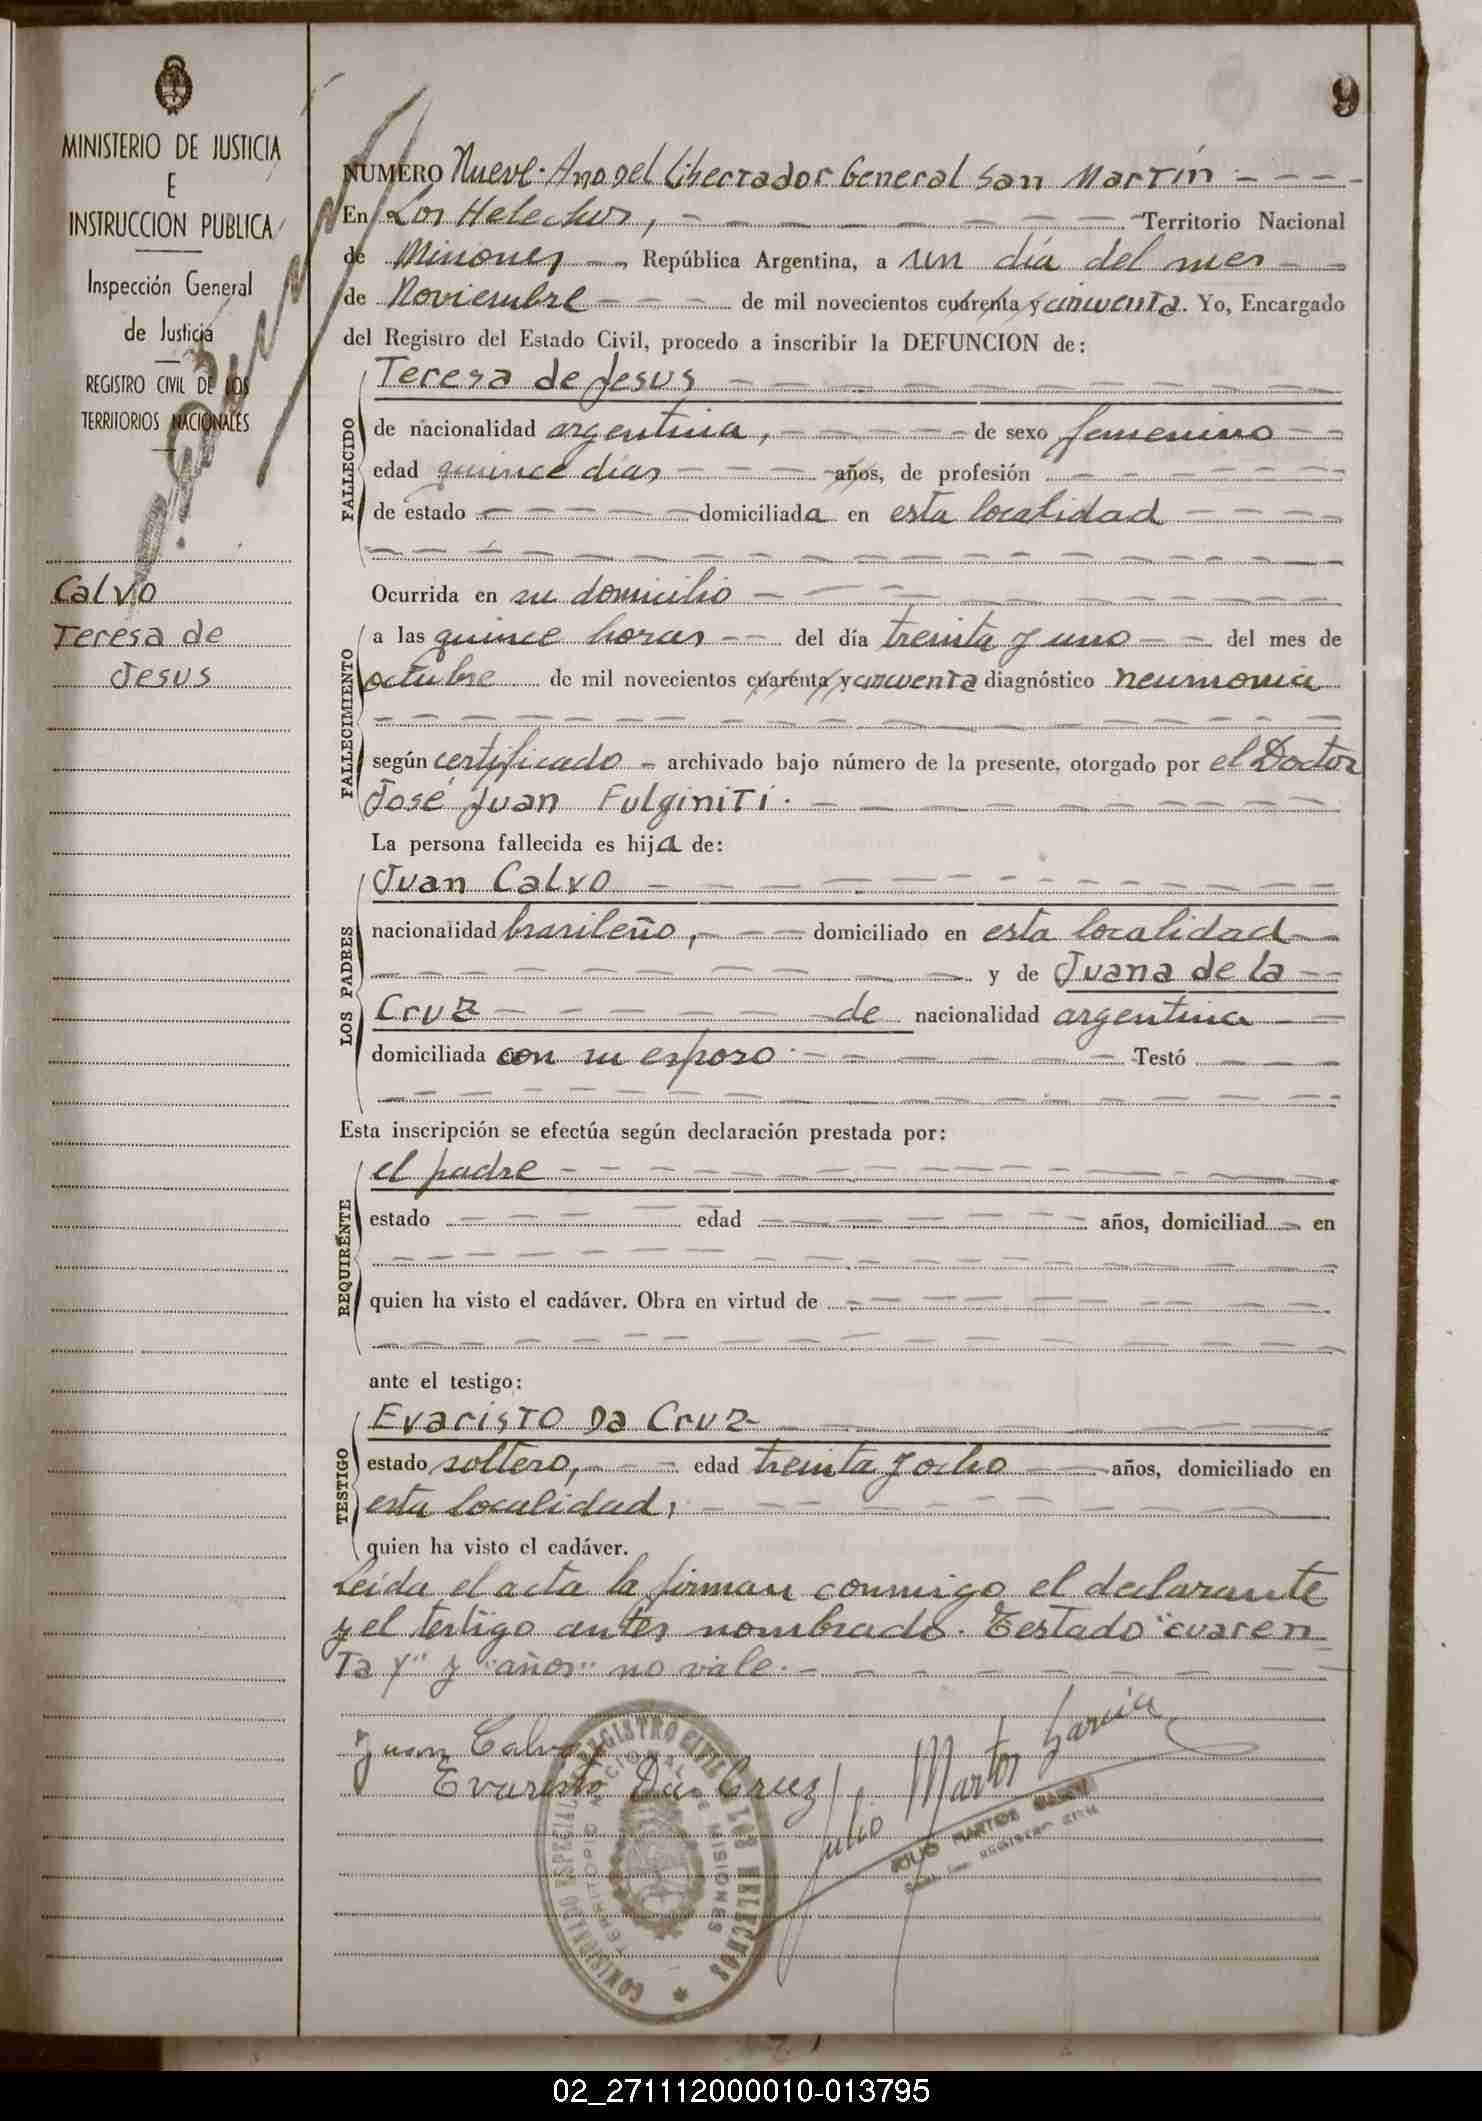 9
MINISTERIO DE JUSTICIA
E
INSTRUCCION PUBLICA
Inspección General
de Justicia
REGISTRO CIVIL DE LOS
TERRITORIOS NACIONALES
Calvo
Teresa de
Jesus
NUMERO Nueve. Ano Del Libertador General San Martín
En Los Helechos, Territorio Nacional
de Misiones República Argentina, a un día del mes
de Noviembre de mil novecientos cuarenta y cincuenta. Yo, Encargado
del Registro del Estado Civil, procedo a inscribir la DEFUNCION de:
FALLECIDO
Teresa de Jesus
de nacionalidad argentina, de sexo femenino
edad quince días años, de profesión
de estado domiciliada en esta localidad
Ocurrida en su domicilio
FALLECIMIENTO
a las quince horas del día treinta y uno del mes de
octubre de mil novecientos cuarenta y cincuenta diagnóstico neumonia
según certificado archivado bajo número de la presente, otorgado por el Doctor
José Juan Fulginiti.
La persona fallecida es hija de:
LOS PADRES
Juan Calvo
nacionalidad brasileño, domiciliado en esta localidad
y de Juana de la
Cruz de nacionalidad argentina
domiciliada con su esposo. Testó
Esta inscripción se efectúa según declaración prestada por:
REQUIRENTE
el padre
estado edad años, domiciliad en
quien ha visto el cadáver. Obra en virtud de
ante el testigo:
TESTIGO
Evaristo Da Cruz
estado soltero, edad treinta y ocho años, domiciliado en
esta localidad,
quien ha visto el cadáver.
Leída el acta la firman conmigo el declarante
y el testigo antes nombrado. Testado "cuaren
ta y" y "años" no vale.
Juan Calvo
Evaristo Da Cruz
Julio Martos Garcia
JULIO MARTOS GARCIA
REGISTRO CIVIL
COMISIONADO ESPECIAL REGISTRO CIVIL LOS HELECHOS
TERRITORIO NACIONAL DE MISIONES
02_271112000010-013795